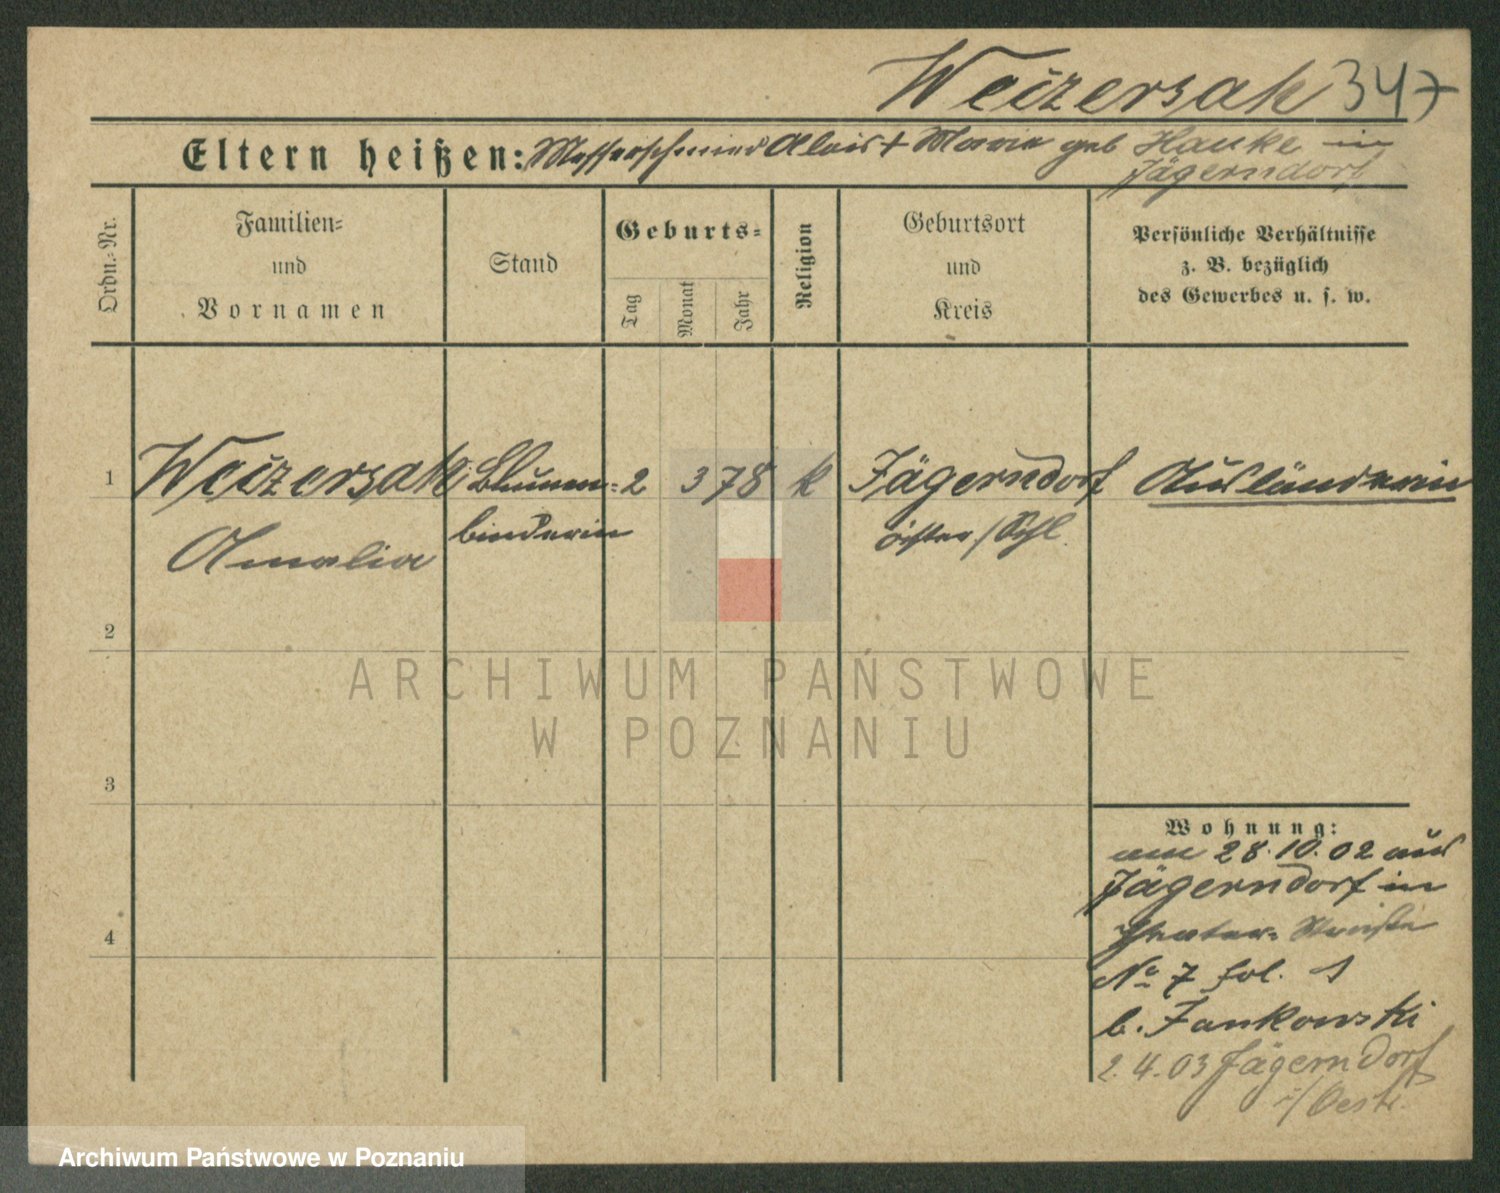 Weizersak 347
Eltern heißen: Messerschmied Alois + Marie geb Hauke in
Jägerndorf
Ordn.-Nr.
Familien-
und
Vornamen
Stand
Geburts-
Tag
Monat
Jahr
Religion
Geburtsort
und
Kreis
Persönliche Verhältnisse
z. B. bezüglich
des Gewerbes u. s. w.
1 Weizersak Blumen- 2 3 78 k Jägerndorf Ausländerin
Amalia binderin öster./Schl.
2
3
4
Wohnung:
am 28.10.02 aus
Jägerndorf in
Theater- Straße
No 7 fol. 1
b. Jankowski
2.4.03 Jägerndorf
i/Oestr.
ARCHIWUM PAŃSTWOWE
W POZNANIU
Archiwum Państwowe w Poznaniu